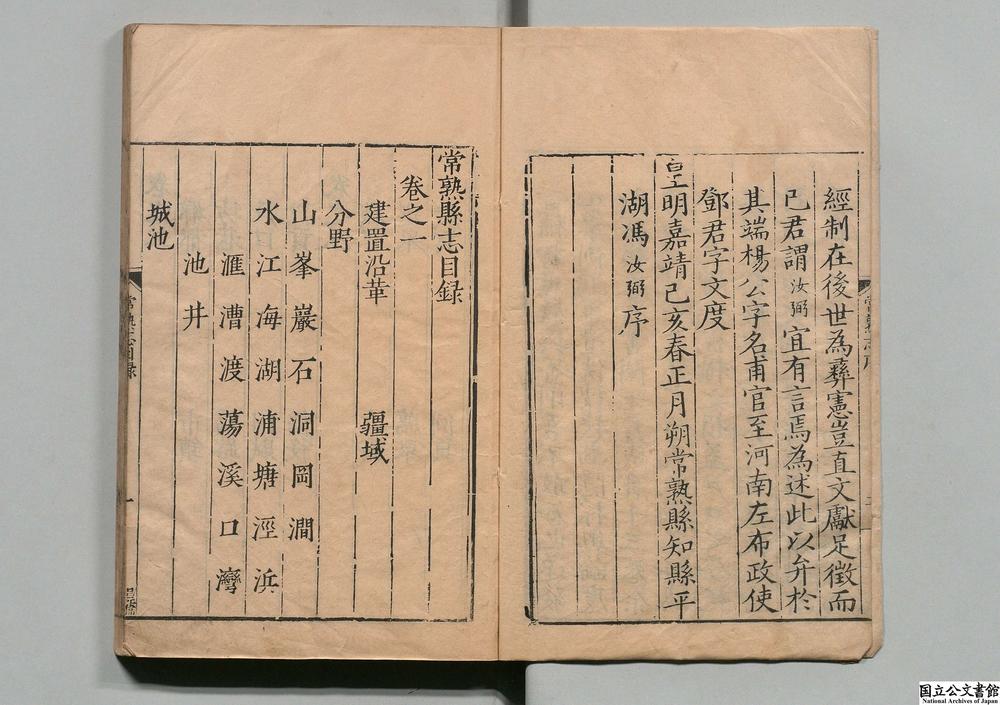 經制在後世為彝憲豈直文獻足徵而
已君謂汝弼宜有言焉為述此以弁於
其端楊公字名甫官至河南左布政使
鄧君字文度
皇明嘉靖己亥春正月朔常熟縣知縣平
湖馮汝弼序
常熟志序
二
常熟縣志目録
卷之一
建置沿革 疆域
分野
山峯巖石洞岡澗
水江海湖浦塘涇浜
滙漕渡蕩溪口灣
池井
城池
常熟志目録
一
国立公文書館
National Archives of Japan